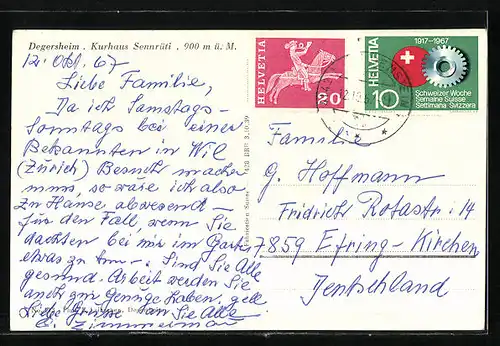 Degersheim . Kurhaus Sennrüti . 900 m ü. M.
12. Okt. 67
Liebe Familie,
Da ich Samstags -
Sonntags bei einer
Bekannten in Wil
(Zürich) Besuch machen
muss, so wäre ich also
zu Hause abwesend -
für den Fall, wenn Sie
dachten bei mir im Garten
etwas zu tun. Sind Sie Alle
gesund. Arbeit werden Sie
auch zur Genüge haben, gell
Liebe Grüsse an Sie Alle
E. Zimmerman
HELVETIA
20
1917-1967
HELVETIA
10
Schweizer Woche
Semaine Suisse
Settimana Svizzera
Familie
G. Hoffmann
Fridrich Rotastr. 14
7859 Efring-Kirchen
Jentschland